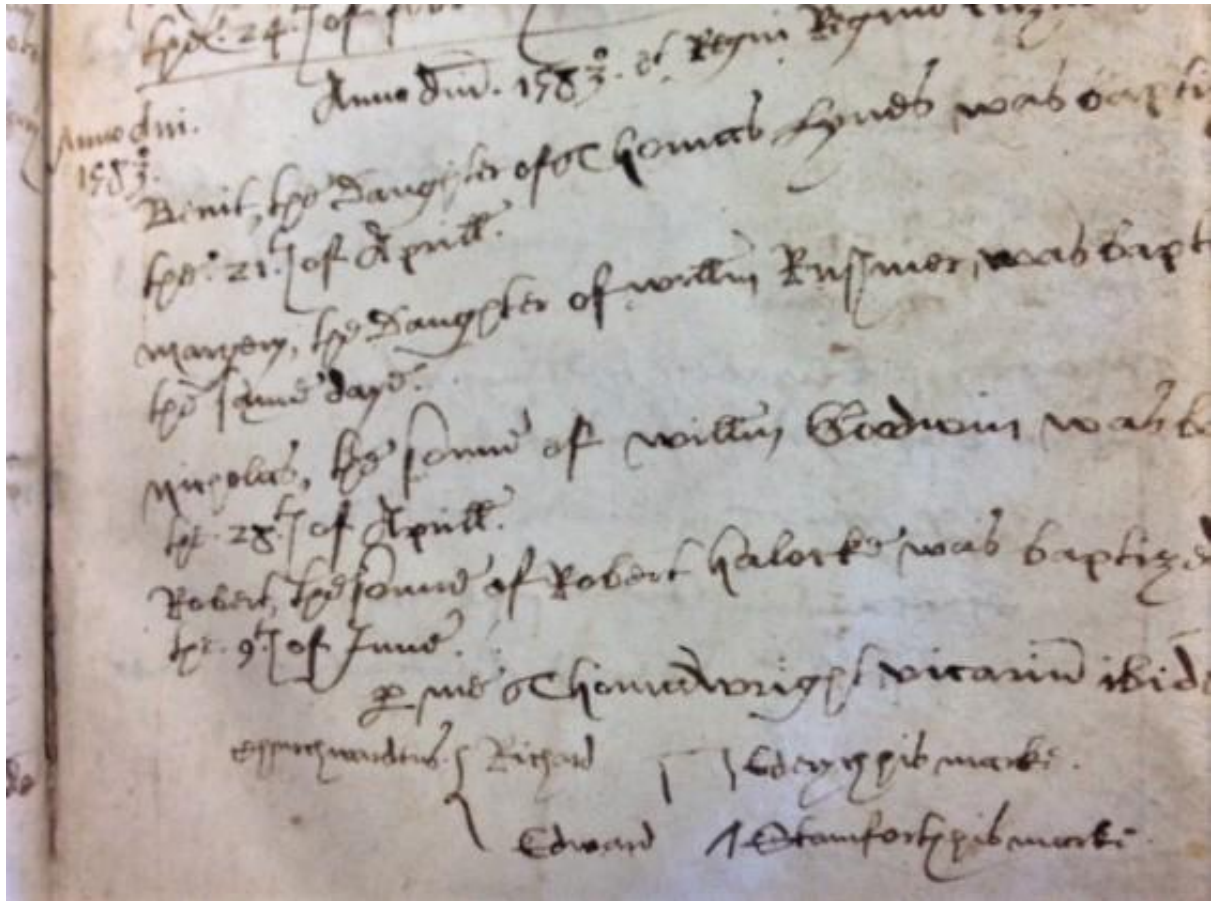 the 24th of
Anno dni. 1583o. et Regni Regine
Anno dni.
1583o.
Benit, the Daughter of Thomas Lynes was bapti
the 21th of Aprill.
margery, the Daughter of willm Rushmer, was bapti
the same daye.
nicholas, the sonne of willm Goodwin was b
the 28th of Aprill.
Robert, the sonne of Robert halocke was baptized
the 9th of June.
p me Thomā wright vicariū ibid
Churchwardens Richard his marke.
Edward Stamforth his marke.